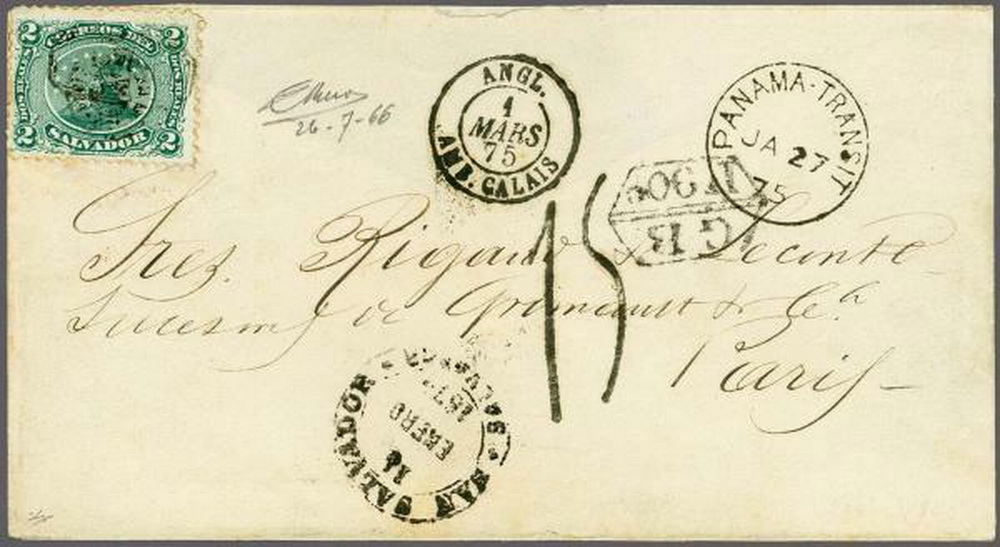 2 CORREOS DEL 2
DOS REALES DOS REALES
2 SALVADOR 2
26-7-66
ANGL.
1
MARS
75
AMB. CALAIS
PANAMA-TRANSIT
JA 27
75
GB
1F90c
15
Sres. Rigaud & Lecomte
Sucesores de Grimault & Ca
Paris
SAN SALVADOR
14
ENERO
187